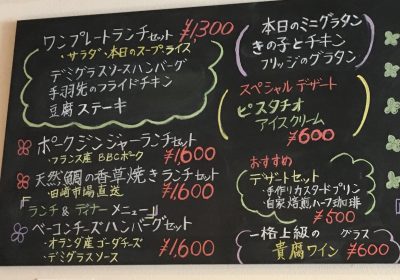 ワンプレートランチセット ¥1300
・サラダ・本日のスープ・ライス
デミグラスソースハンバーグ
手羽先のフライドチキン
豆腐ステーキ
ポークジンジャーランチセット
・フランス産 BBCポーク ¥1,600
天然鯛の香草焼きランチセット
・田崎市場直送 ¥1,600
ランチ & ディナー メニュー
ベーコンチーズハンバーグセット
・オランダ産ゴーダチーズ
・デミグラスソース ¥1,600
本日のミニグラタン
きの子とチキン
フリッジのグラタン
スペシャル デザート
ピスタチオ
アイスクリーム
¥600
おすすめ
デザートセット
・手作りカスタードプリン
・自家焙煎ハーフ珈琲
¥500
一格上級の グラス
貴腐ワイン ¥600